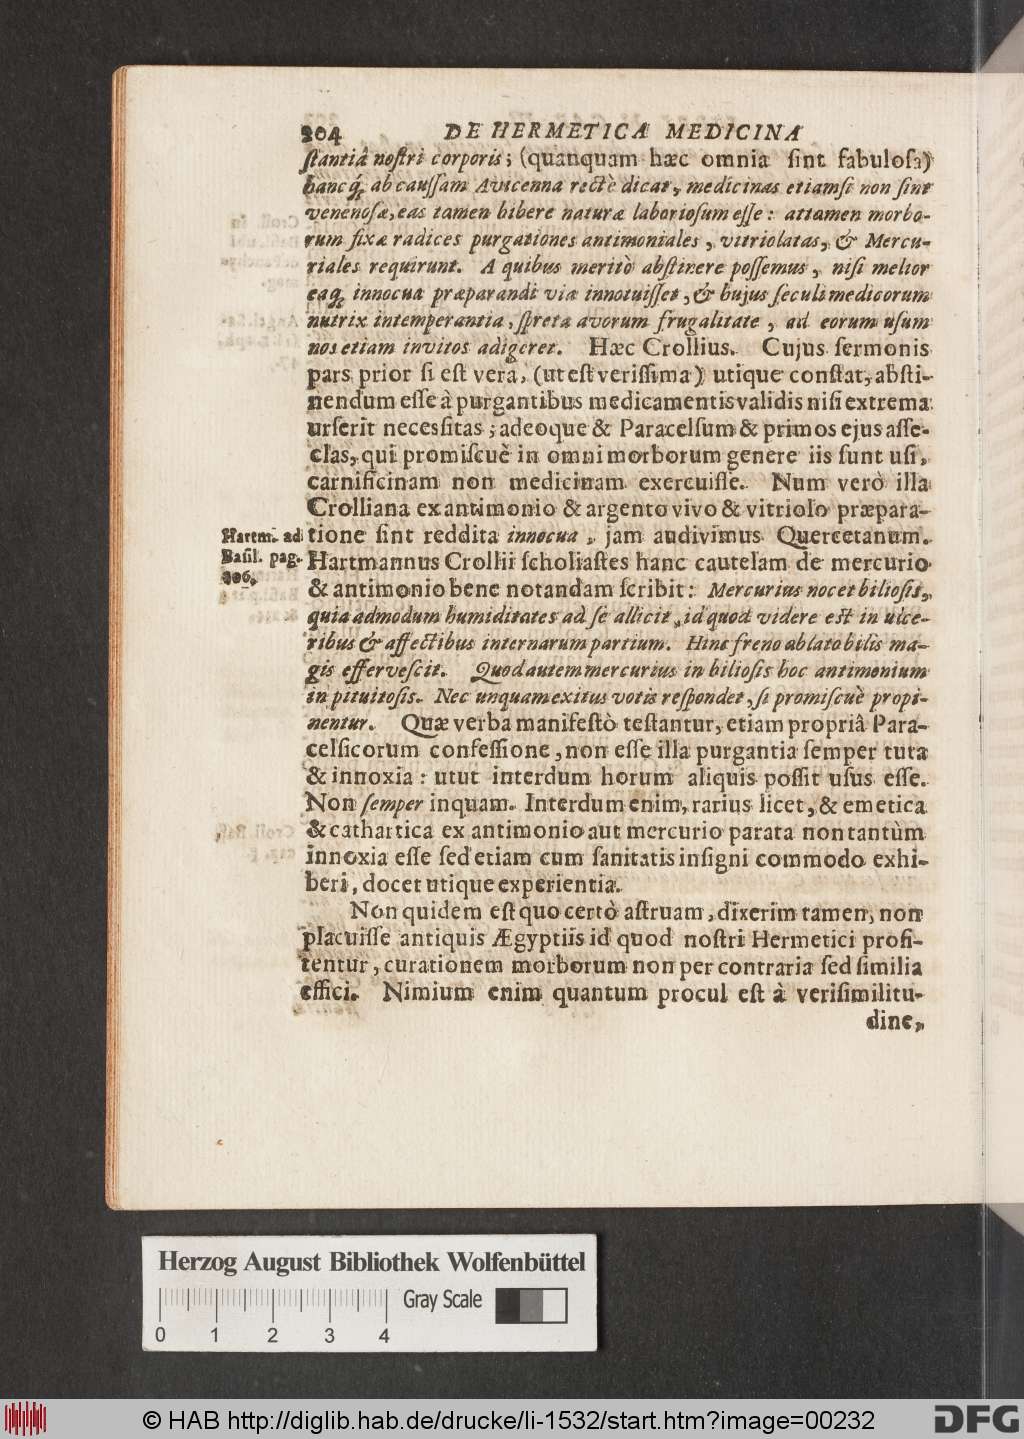 204 DE HERMETICA MEDICINA
ſtantiâ noſtri corporis; (quanquam hæc omnia ſint fabuloſa)
hancq́; ab cauſſam Avicenna rectè dicat, medicinas etiamſi non ſint
venenoſæ, eas tamen bibere naturæ laborioſum eſſe: attamen morbo-
rum fixæ radices purgationes antimoniales, vitriolatas, & Mercu-
riales requirunt. A quibus meritò abſtinere poſſemus, niſi melior
eaq́; innocua præparandi via innotuiſſet, & hujus ſeculi medicorum
nutrix intemperantia, ſpreta avorum frugalitate, ad eorum uſum
nos etiam invitos adigeret. Hæc Crollius. Cujus ſermonis
pars prior ſi eſt vera, (ut eſt veriſſima) utique conſtat, abſti-
nendum eſſe à purgantibus medicamentis validis niſi extrema
urſerit neceſsitas; adeoque & Paracelſum & primos ejus aſſe-
clas, qui promiſcuè in omni morborum genere iis ſunt uſi,
carnificinam non medicinam exercuiſſe. Num verò illa
Crolliana ex antimonio & argento vivo & vitriolo præpara-
tione ſint reddita innocua, jam audivimus Quercetanum.
Hartm. ad
Baſil. pag.
206.
Hartmannus Crollii ſcholiaſtes hanc cautelam de mercurio
& antimonio bene notandam ſcribit: Mercurius nocet bilioſis,
quia admodum humiditates ad ſe allicit, id quod videre eſt in ulce-
ribus & affectibus internarum partium. Hinc freno ablato bilis ma-
gis efferveſcit. Quod autem mercurius in bilioſis hoc antimonium
in pituitoſis. Nec unquam exitus votis reſpondet, ſi promiſcuè propi-
nentur. Quæ verba manifeſtò teſtantur, etiam propriâ Para-
celſicorum confeſſione, non eſſe illa purgantia ſemper tuta
& innoxia: utut interdum horum aliquis poſſit uſus eſſe.
Non ſemper inquam. Interdum enim, rarius licet, & emetica
& cathartica ex antimonio aut mercurio parata non tantùm
innoxia eſſe ſed etiam cum ſanitatis inſigni commodo exhi-
beri, docet utique experientia.
Non quidem eſt quo certò aſtruam, dixerim tamen, non
placuiſſe antiquis Ægyptiis id quod noſtri Hermetici profi-
tentur, curationem morborum non per contraria ſed ſimilia
effici. Nimium enim quantum procul eſt à veriſimilitu-
dine,
Herzog August Bibliothek Wolfenbüttel
Gray Scale
0 1 2 3 4
© HAB http://diglib.hab.de/drucke/li-1532/start.htm?image=00232
DFG